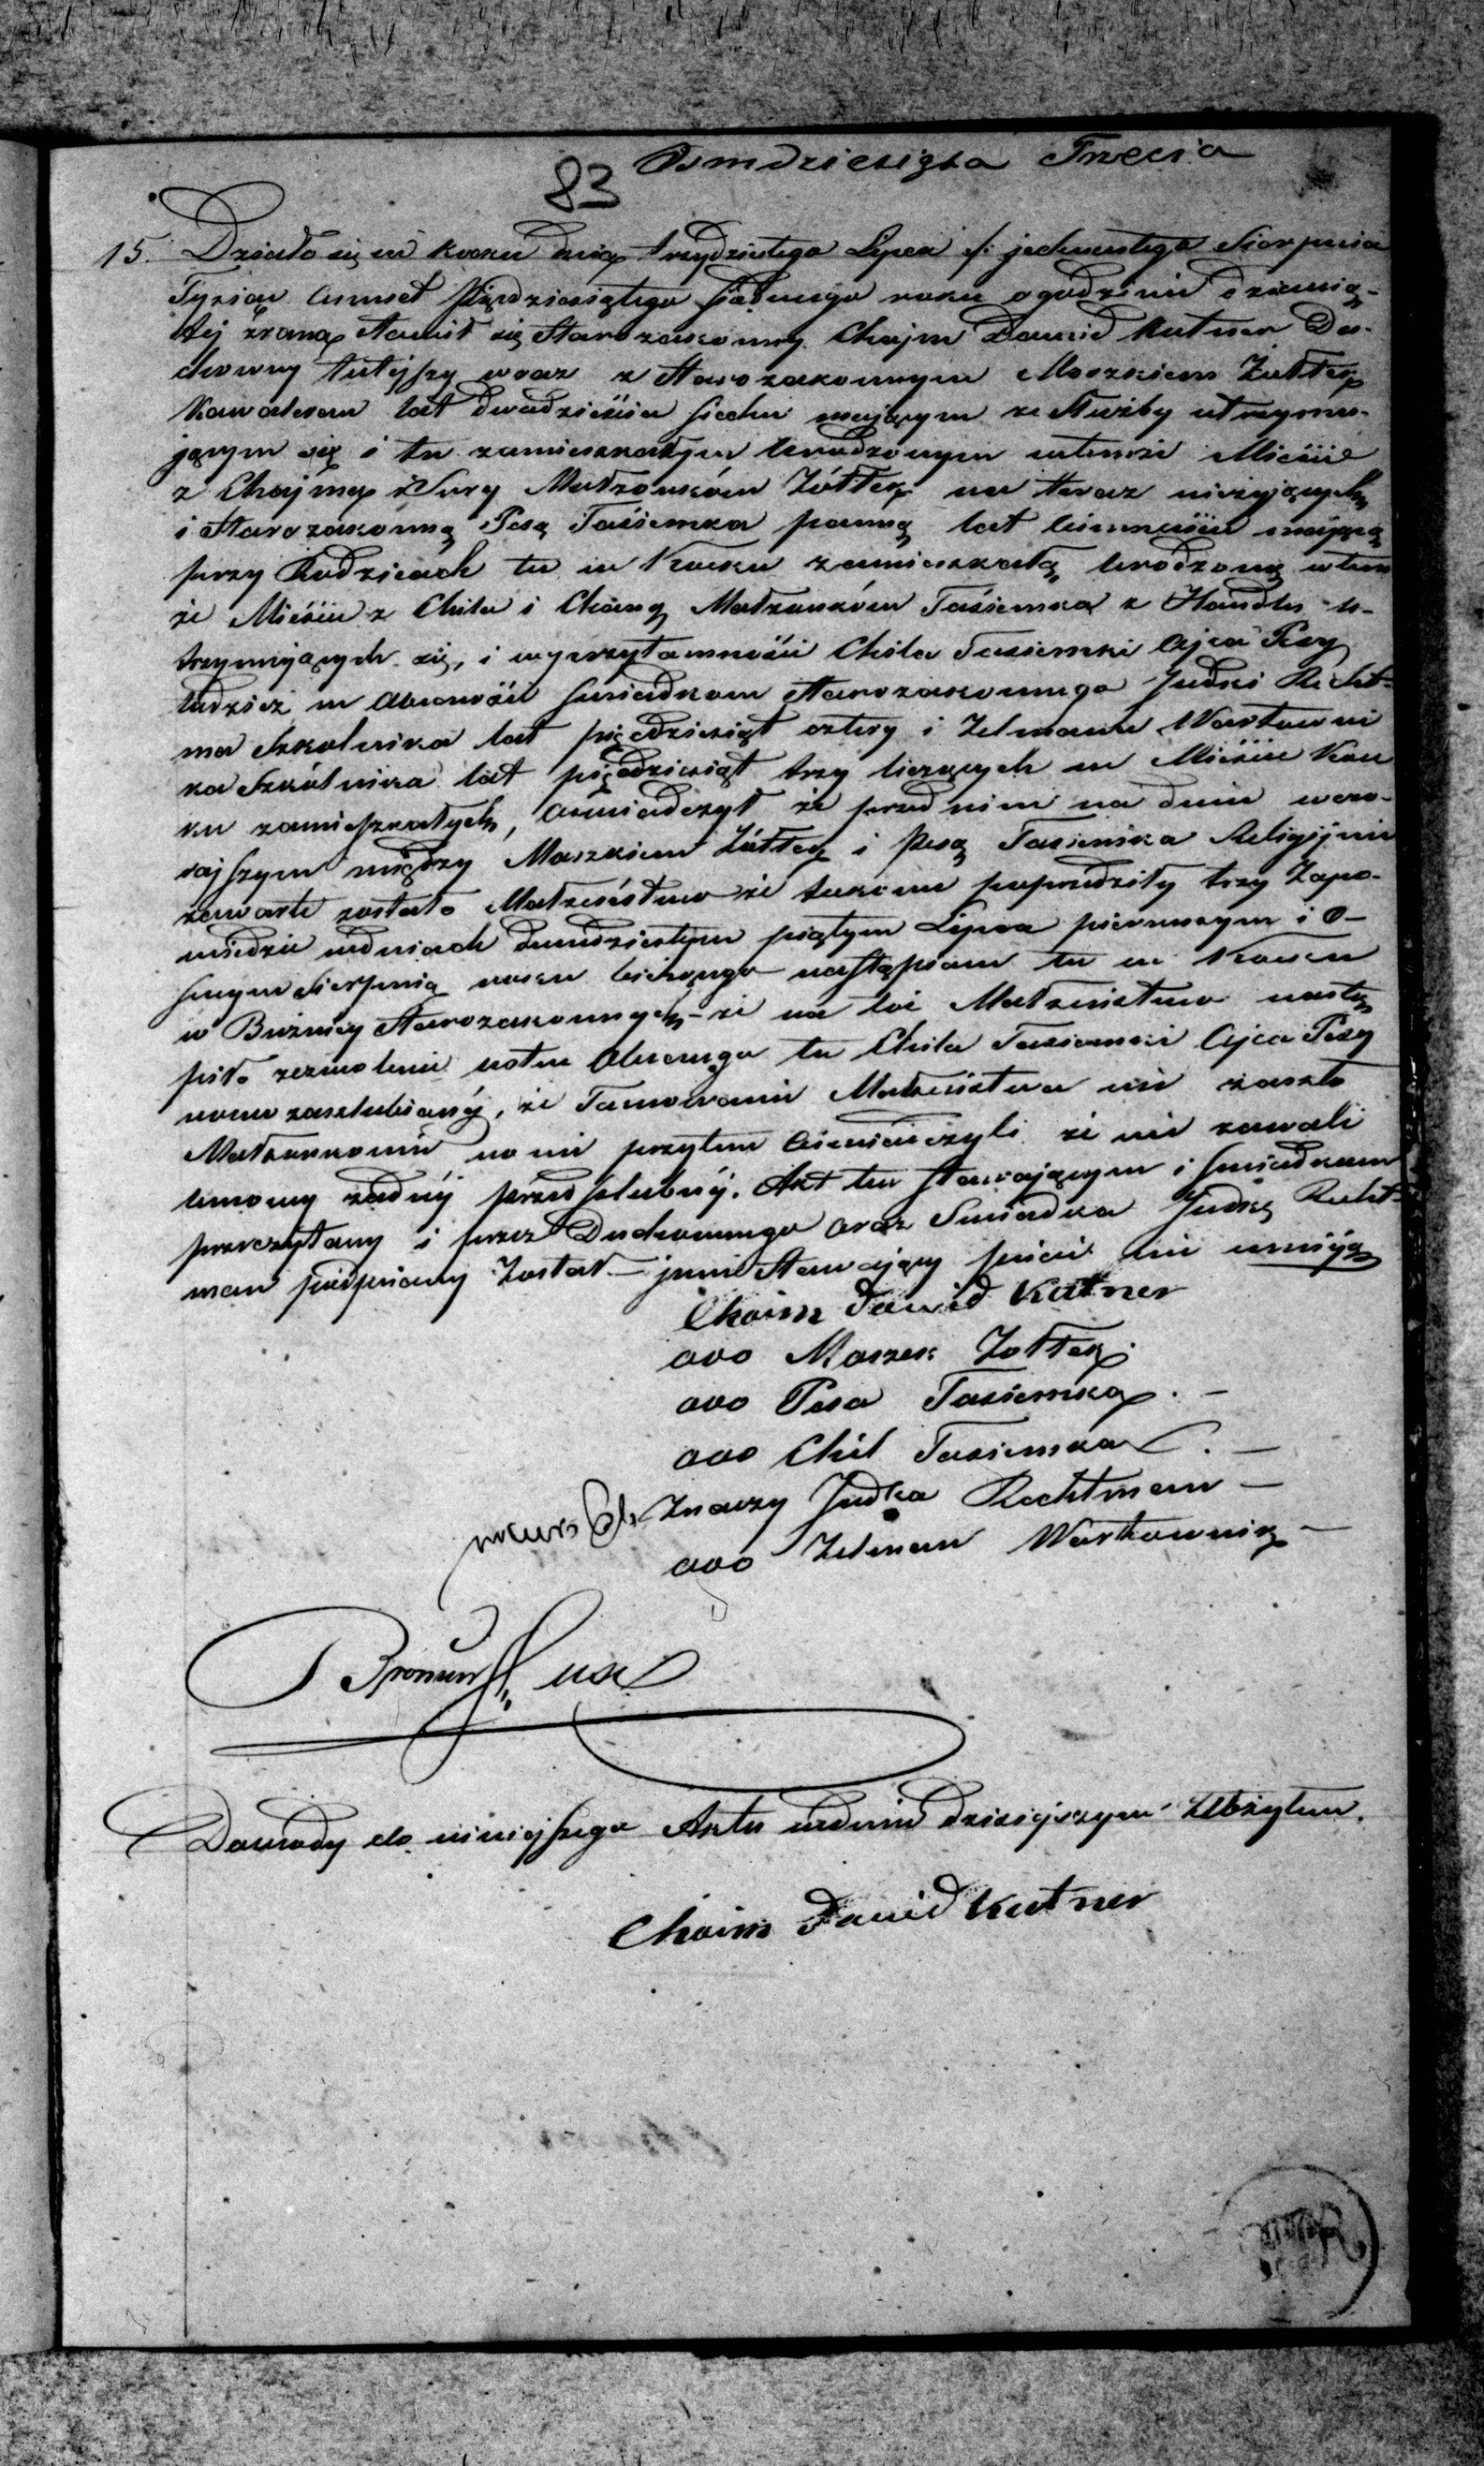 83 Osmdziesiąta Trzecia
15. Działo się w Kocku dnia trzydziestego Lipca /: jedenastego Sierpnia
Tysiąc Ośmset Pięćdziesiątego siódmego roku o godzinie dziewią-
tej zrana stawił się Starozakonny Chajm Dawid Kutner Du-
chowny tutejszy wraz z Starozakonnym Moszkiem Żółtek
Kawalerem lat dwadzieścia mającym ze Służby utrzymu-
jącym się i tu zamieszkałym urodzonym w temże Mieście
z Chajma i Sury Małżonków Żółtek na teraz nieżyjących
i Starozakonną Pesą Tasiemka panną lat ośmnaście mającą
przy Rodzicach tu w Kocku zamieszkałą, urodzoną w tem
że Mieście z Chila i Chány Małżonków Tasiemka z Handlu u-
trzymujących się, i w przytomności Chila Tasiemki Ojca Pesy
tudzież w obecności świadków Starozakonnego Judki Recht-
ma Szkolnika lat pięćdziesiąt cztery i Zelmana Wartowni
ka Szkólnika lat pięćdziesiąt trzy liczących w Mieście Koc
ku zamieszkałych, oświadczył że przed nim na dniu wczo-
rajszym między Moszkiem Żółtek i Pesą Tasiemka Religijnie
zawarte zostało Małżeństwo że takowe poprzedziły trzy Zapo-
wiedzie w dniach dwudziestym piątym Lipca pierwszym i ó-
smym Sierpnia roku bieżącego nastąpione tu w Kocku
w Bużnicy Starozakonnych – że na toż Małżeństwo nastą
piło zezwolenie ustne obecnego tu Chila Tasiemki Ojca Pesy
nowo zaszlubionéj, że Tamowanie Małżeństwa nie zaszło
Małżonkowie nowi przytem oświadczyli że nie zawarli
umowy żadnéj przedślubnéj. Akt ten stawającym i świadkom
przeczytany i przez Duchownego oraz Świadka Judkę Recht-
man podpisany został – inni Stawający pisać nie umieją
Chaim Dawid Kutner
ooo Moszek Żółtek.
ooo Pesa Tasiemka. –
ooo Chil Tasiemka. –
Znaczy Judka Rechtman –
ooo Zelman Wartownik –
Dowody do niniejszego Aktu w dniu dzisiejszym złożyłem.
Chaim Dawid Kutner